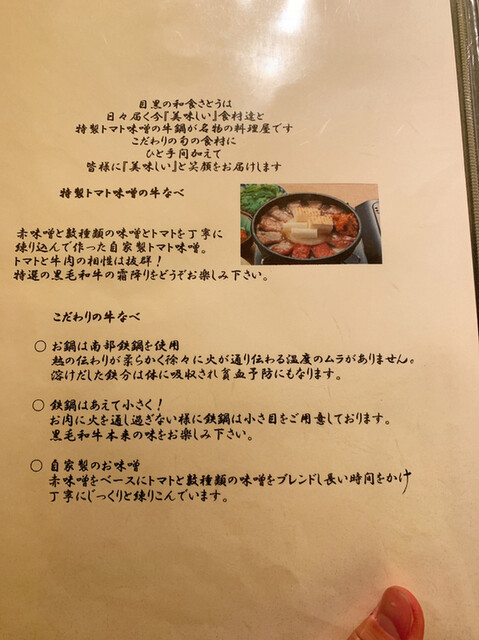 目黒の和食さとうは
日々届く今『美味しい』食材達と
特製トマト味噌の牛鍋が名物の料理屋です
こだわりの旬の食材に
ひと手間加えて
皆様に『美味しい』と笑顔をお届けします
特製トマト味噌の牛なべ
赤味噌と数種類の味噌とトマトを丁寧に
練り込んで作った自家製トマト味噌。
トマトと牛肉の相性は抜群!
特選の黒毛和牛の霜降りをどうぞお楽しみ下さい。
こだわりの牛なべ
○ お鍋は南部鉄鍋を使用
熱の伝わりが柔らかく徐々に火が通り伝わる温度のムラがありません。
溶けだした鉄分は体に吸収され貧血予防にもなります。
○ 鉄鍋はあえて小さく!
お肉に火を通し過ぎない様に鉄鍋は小さ目をご用意しております。
黒毛和牛本来の味をお楽しみ下さい。
○ 自家製のお味噌
赤味噌をベースにトマトと数種類の味噌をブレンドし長い時間をかけ
丁寧にじっくりと練りこんでいます。